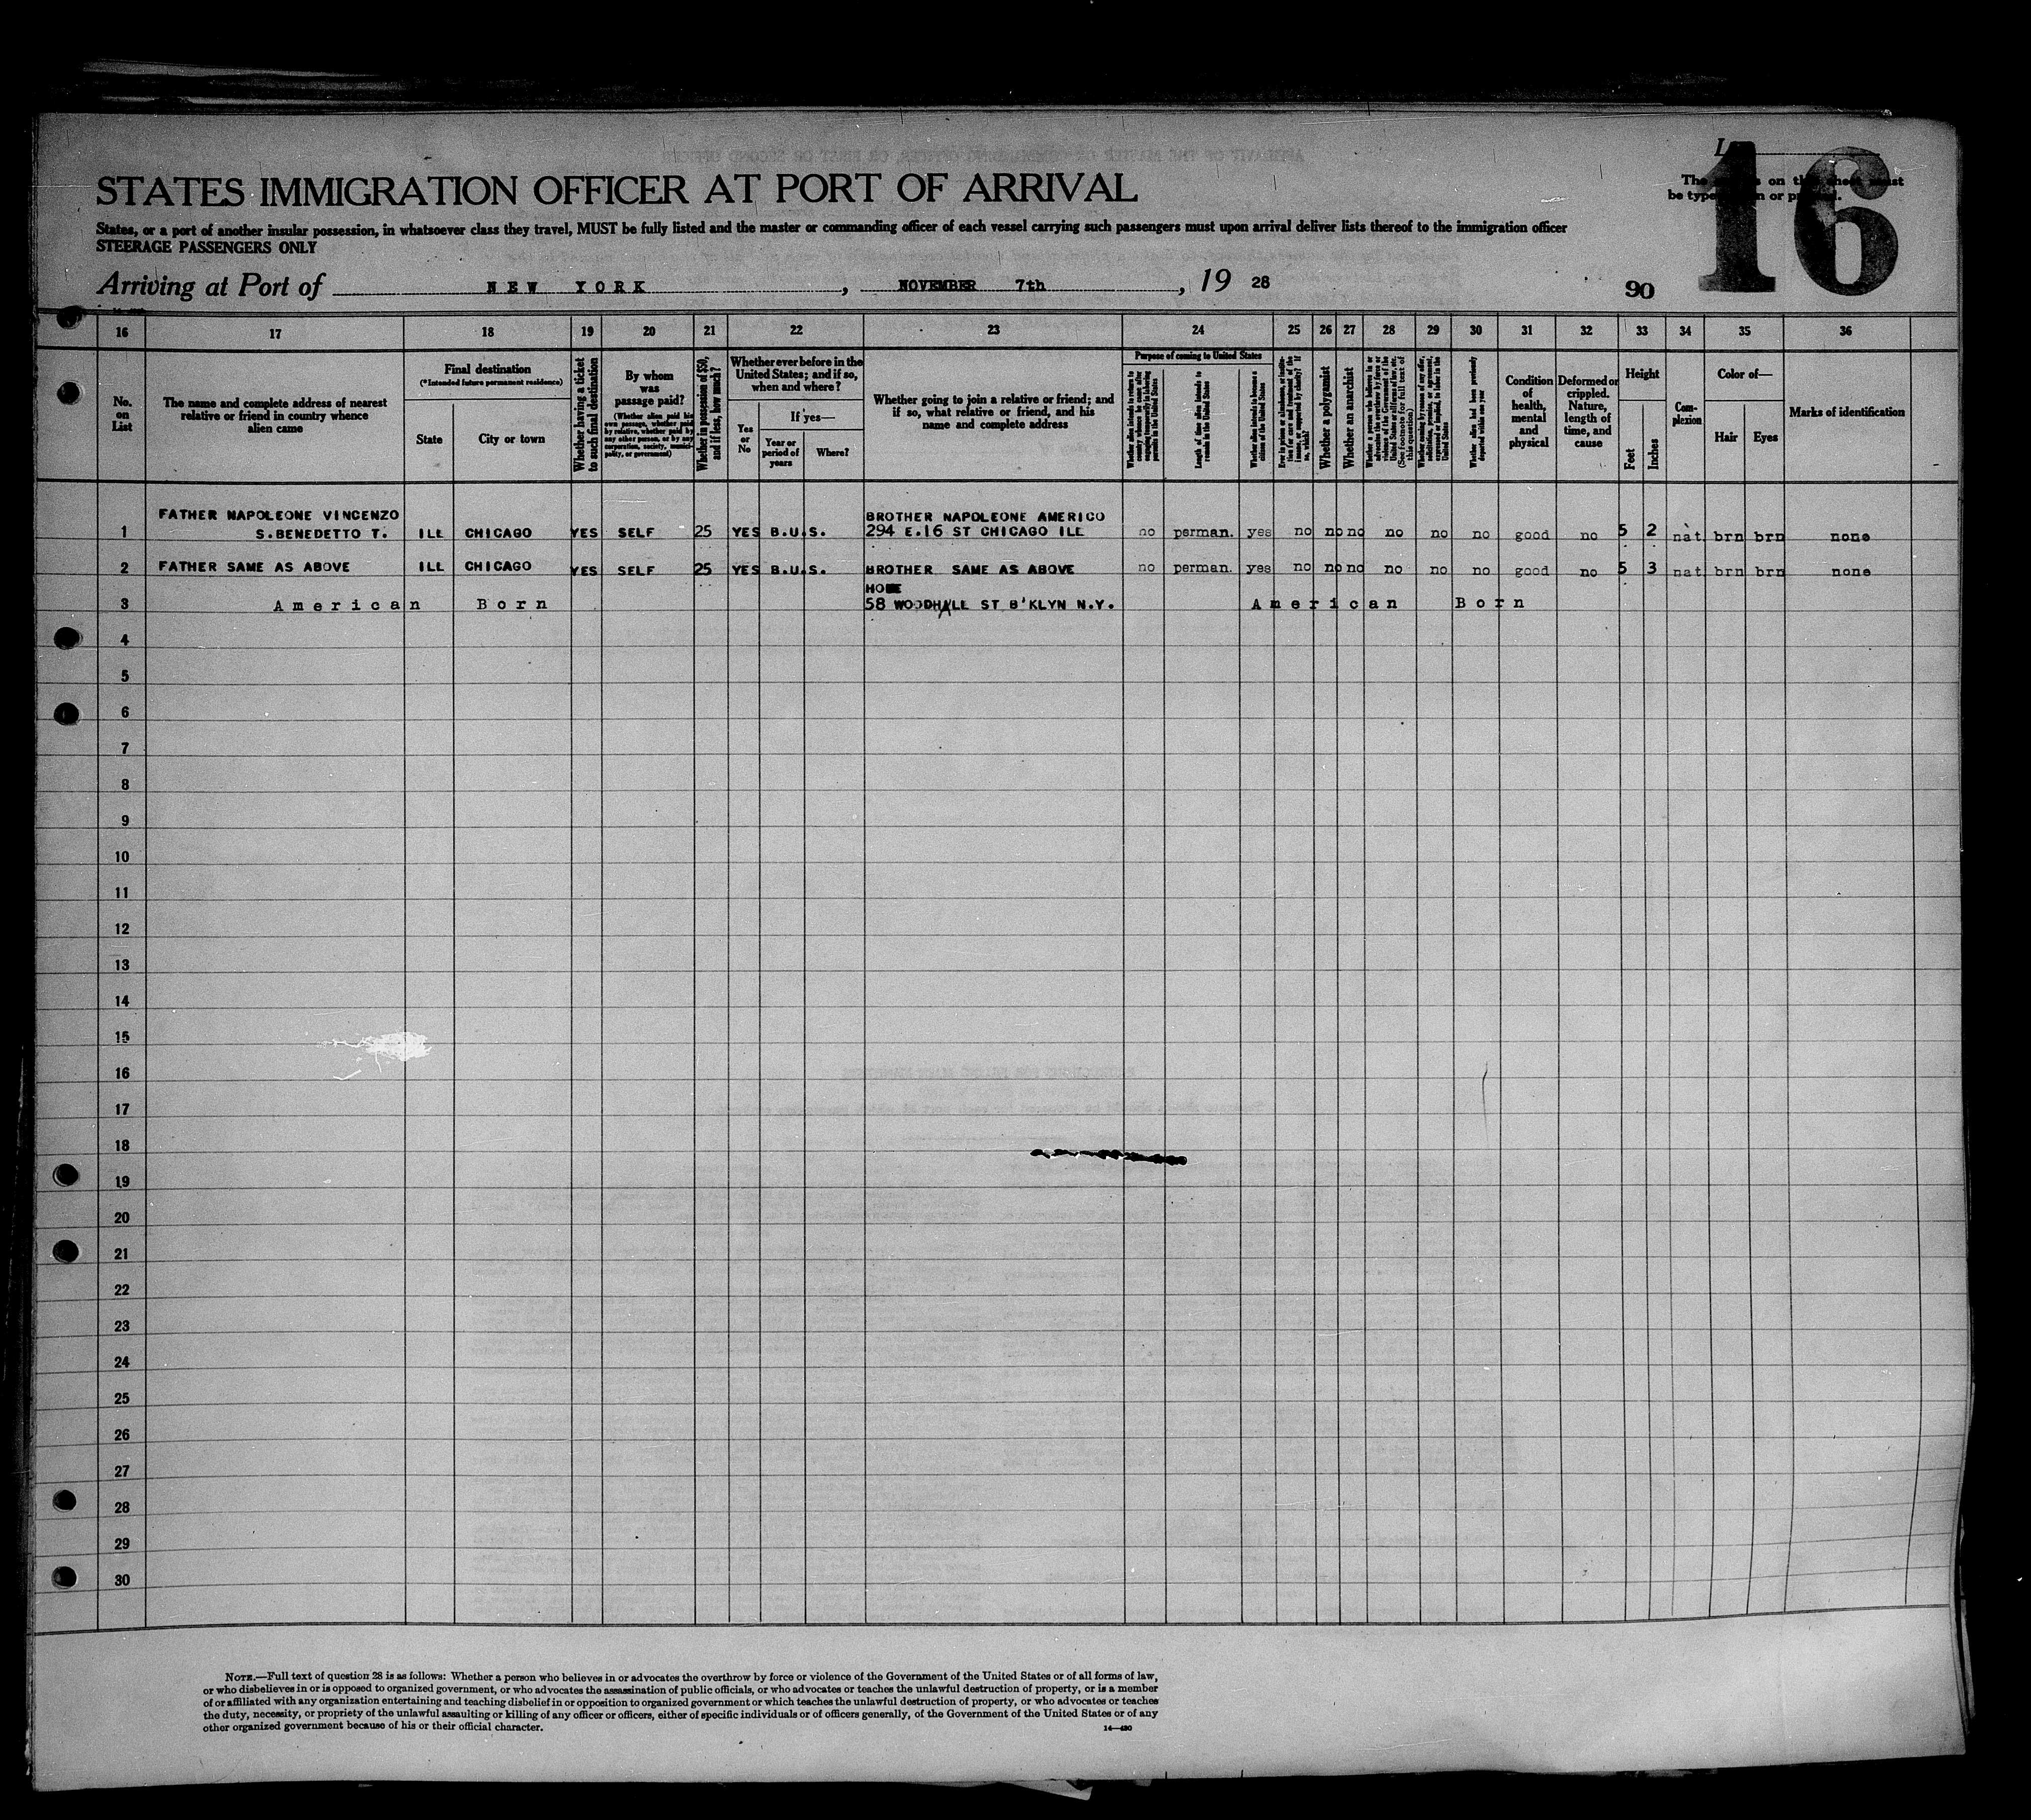 16
STATES IMMIGRATION OFFICER AT PORT OF ARRIVAL
States, or a port of another insular possession, in whatsoever class they travel, MUST be fully listed and the master or commanding officer of each vessel carrying such passengers must upon arrival deliver lists thereof to the immigration officer
STEERAGE PASSENGERS ONLY
The on this sheet must
be typewritten or printed.
Arriving at Port of NEW YORK, NOVEMBER 7th, 19 28
90
16 17 18 19 20 21 22 23 24 25 26 27 28 29 30 31 32 33 34 35 36
No. on List
The name and complete address of nearest relative or friend in country whence alien came
Final destination
(*Intended future permanent residence)
State
City or town
Whether having a ticket to such final destination
By whom was passage paid?
(Whether alien paid his own passage, whether paid by relative, whether paid by any other person, or by any corporation, society, municipality, or government)
Whether in possession of $50, and if less, how much?
Whether ever before in the United States; and if so, when and where?
Yes or No
If yes—
Year or period of years
Where?
Whether going to join a relative or friend; and if so, what relative or friend, and his name and complete address
Purpose of coming to United States
Whether alien intends to return to country whence he came after engaging temporarily in laboring pursuits in the United States
Length of time alien intends to remain in the United States
Whether alien intends to become a citizen of the United States
Ever in prison or almshouse, or institution for care and treatment of the insane, or supported by charity? If so, which?
Whether a polygamist
Whether an anarchist
Whether a person who believes in or advocates the overthrow by force or violence of the Government of the United States or all forms of law, etc. (See footnote for full text of this question)
Whether coming by reason of any offer, solicitation, promise, or agreement, expressed or implied, to labor in the United States
Whether alien had been previously deported within one year
Condition of health, mental and physical
Deformed or crippled. Nature, length of time, and cause
Height
Feet
Inches
Complexion
Color of—
Hair
Eyes
Marks of identification
FATHER NAPOLEONE VINCENZO BROTHER NAPOLEONE AMERICO
1 S.BENEDETTO T. ILL CHICAGO YES SELF 25 YES B.U.S. 294 E.16 ST CHICAGO ILL no perman. yes no no no no no no good no 5 2 nat brn brn none
2 FATHER SAME AS ABOVE ILL CHICAGO YES SELF 25 YES B.U.S. BROTHER SAME AS ABOVE no perman. yes no no no no no no good no 5 3 nat brn brn none
HOME
3 American Born 58 WOODHALL ST B'KLYN N.Y. American Born
4
5
6
7
8
9
10
11
12
13
14
15
16
17
18
19
20
21
22
23
24
25
26
27
28
29
30
NOTE.—Full text of question 28 is as follows: Whether a person who believes in or advocates the overthrow by force or violence of the Government of the United States or of all forms of law,
or who disbelieves in or is opposed to organized government, or who advocates the assassination of public officials, or who advocates or teaches the unlawful destruction of property, or is a member
of or affiliated with any organization entertaining and teaching disbelief in or opposition to organized government or which teaches the unlawful destruction of property, or who advocates or teaches
the duty, necessity, or propriety of the unlawful assaulting or killing of any officer or officers, either of specific individuals or of officers generally, of the Government of the United States or of any
other organized government because of his or their official character.
14—430